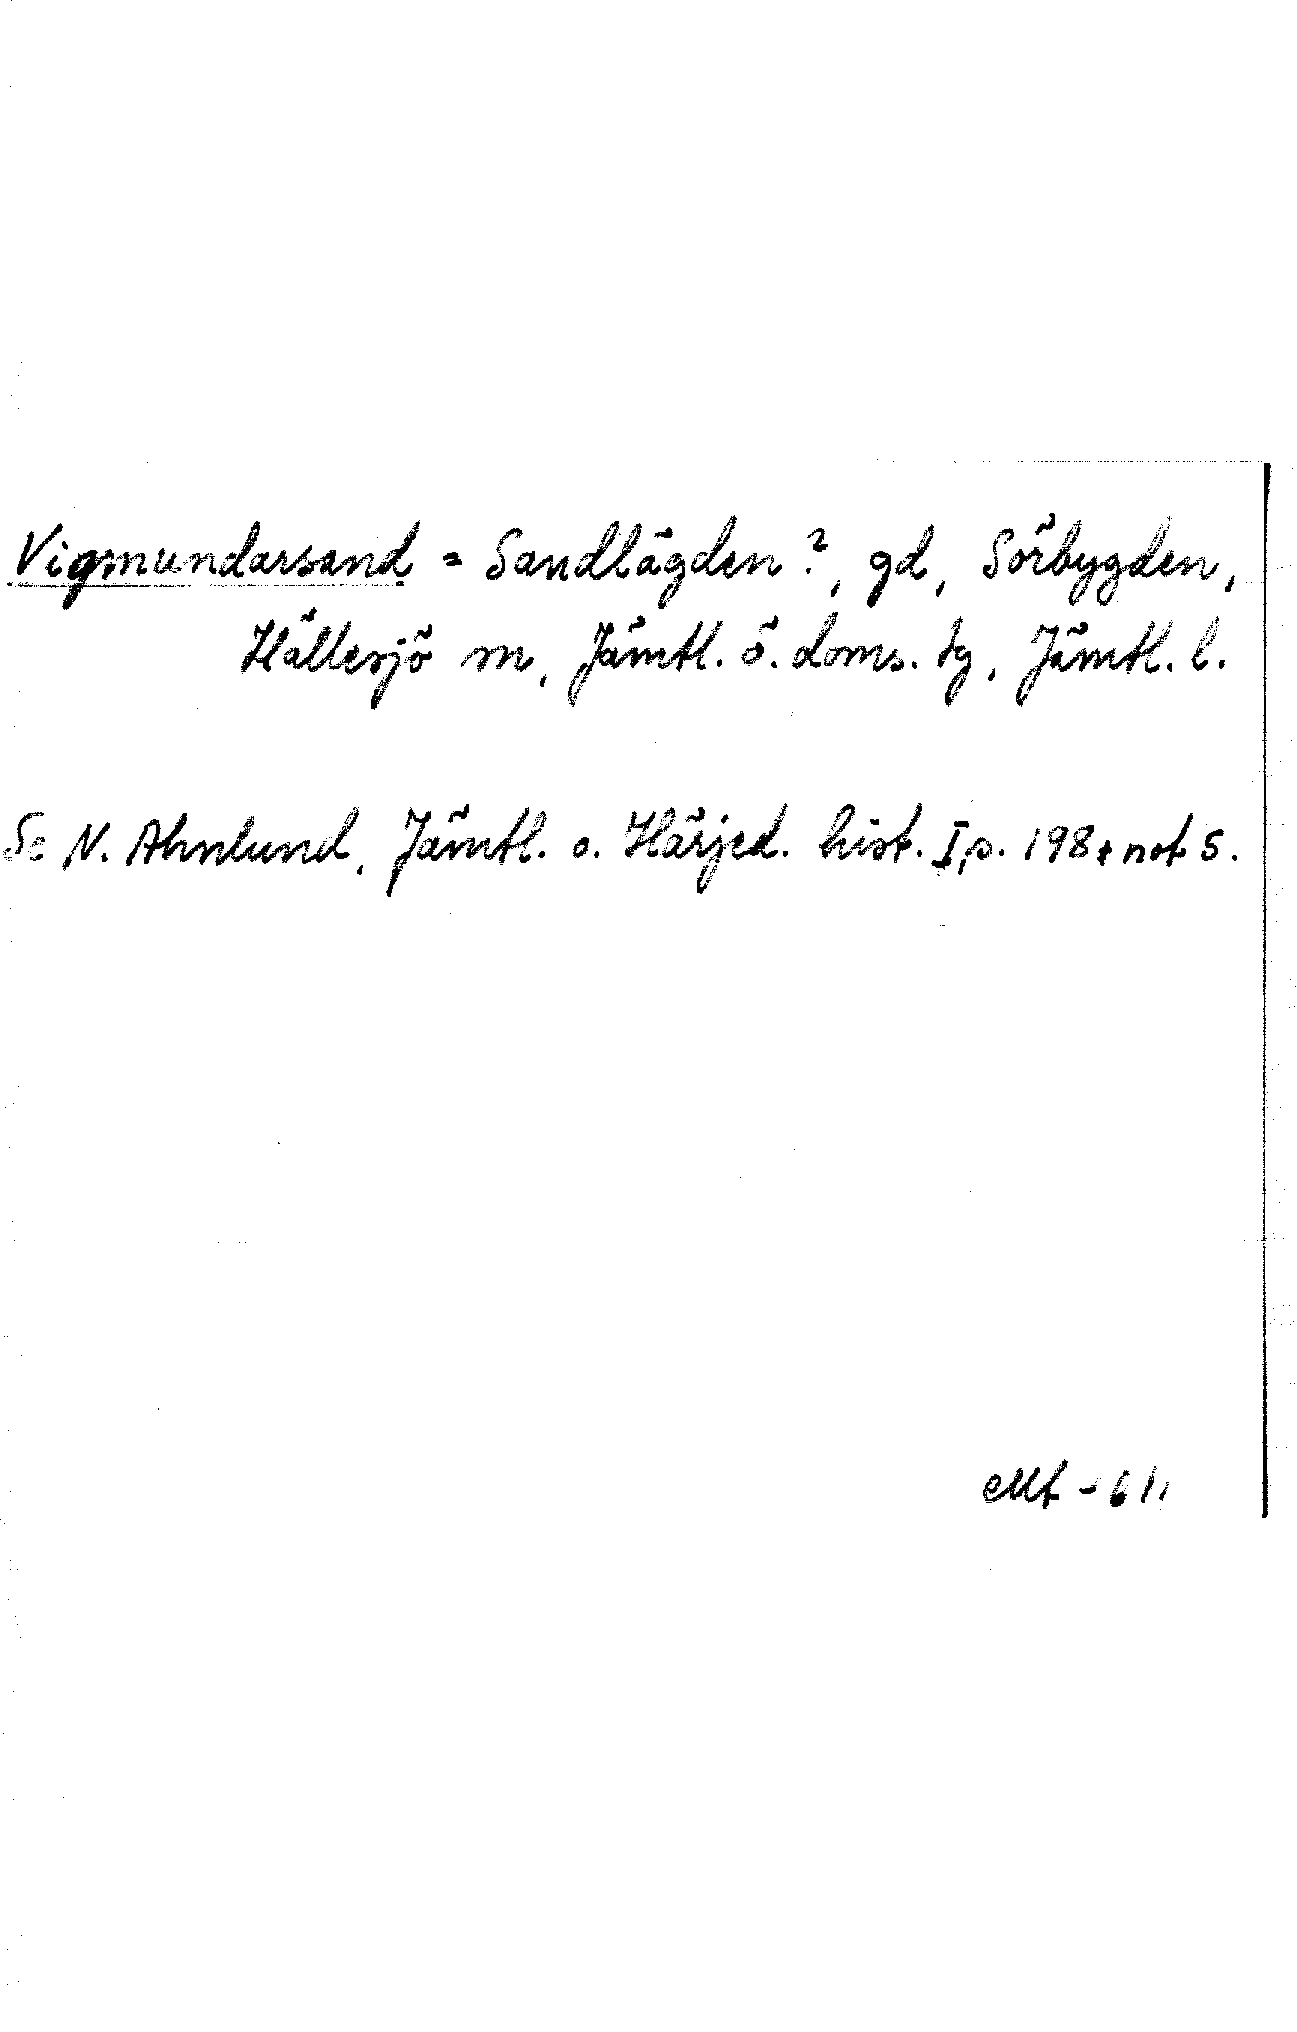 Vigmundarsand = Sandlägden ?, gd, Sörbygden,
Hällesjö sn, Jämtl. ö. doms. tg, Jämtl. l.
Se N. Ahnlund, Jämtl. o. Härjed. hist. I, s. 198 + not 5.